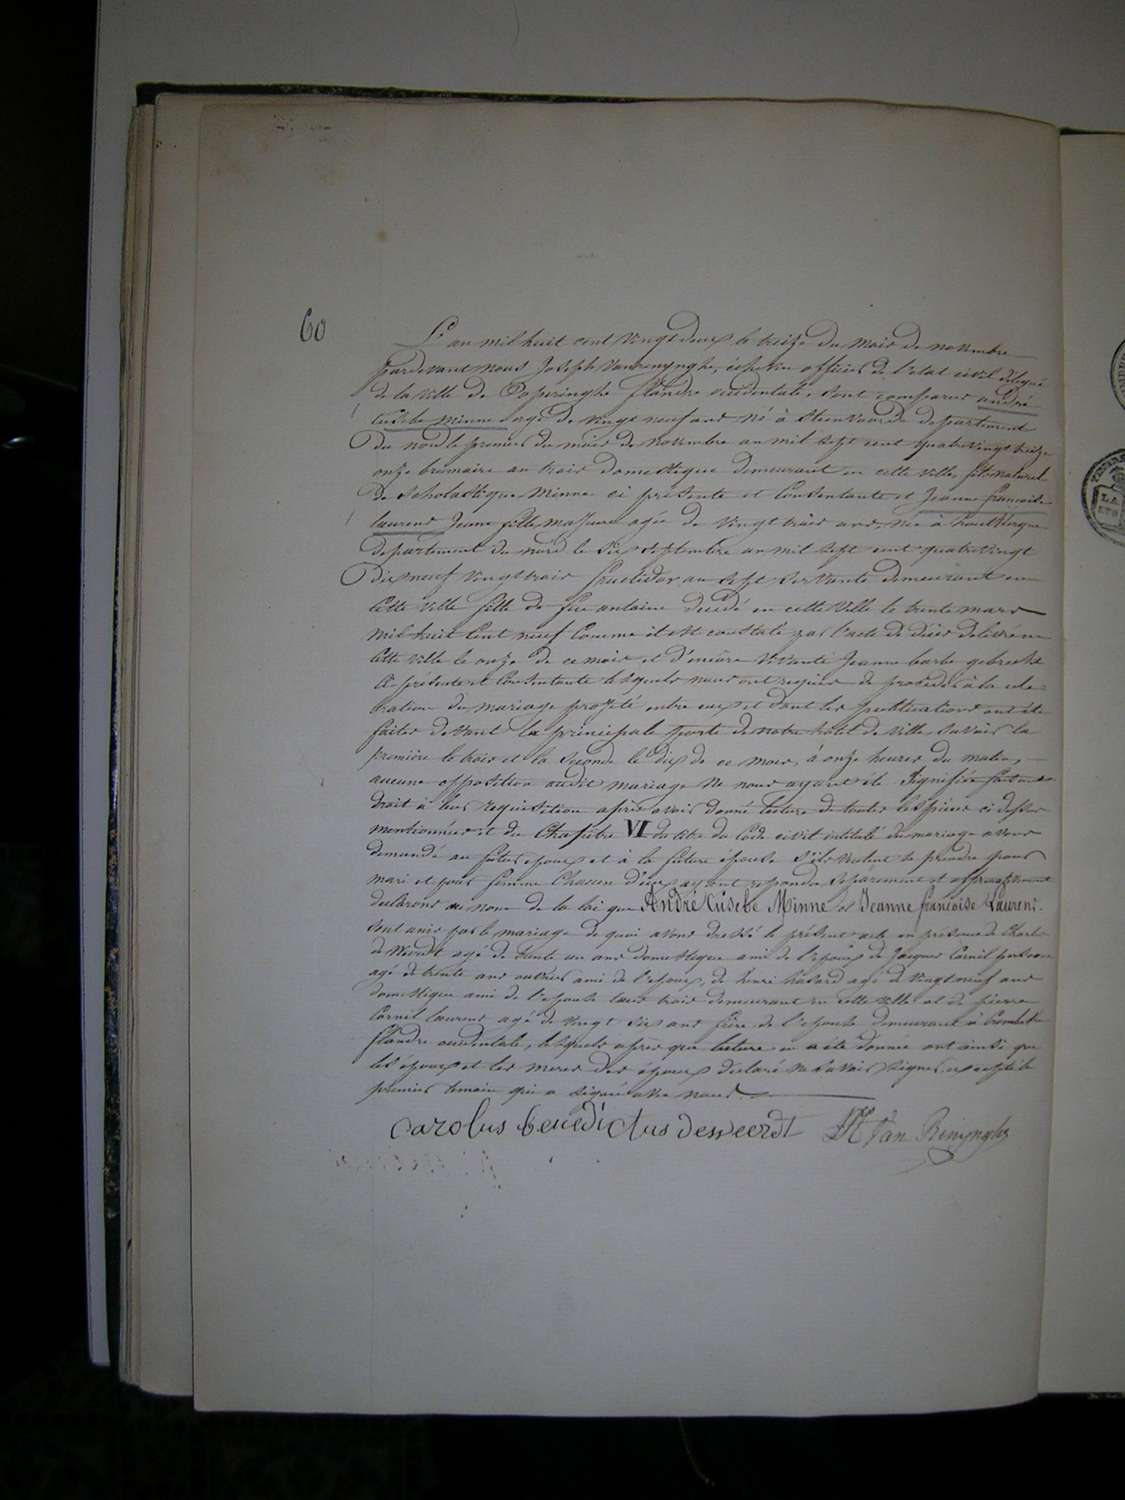 60
L'an mil huit cent vingt deux le treize du mois de novembre
pardevant nous Joseph Vanrenynghe, échevin officier de l'état civil délégué
de la ville de Poperinghe flandre occidentale, sont comparus andré
Eusèbe Minne agé de vingt neuf ans né à Steenvoorde departement
du nord le premier du mois de novembre an mil sept cent quatrevingt treize
onze brumaire an trois domestique demeurant en cette ville, fils naturel
de Scholastique Minne ci présente et Consentante et Jeanne françoise
laurent Jeune fille majeure agée de vingt trois ans, née à houtkerque
departement du nord le six septembre an mil sept cent quatrevingt
dix neuf vingt trois fructidor an sept servante demeurant en
cette ville fille de feu antoine decedé en cette ville le trente mars
mil huit cent neuf comme il est constaté par l'acte de décès délivré en
cette ville le onze de ce mois et d'encore vivante Jeanne barbe
ci présente et Consentante lesquels nous ont requis de procéder à la célé-
bration du mariage projeté entre eux et dont les publications ont été
faites devant la principale porte de notre hotel de ville, savoir la
première le trois et la seconde le dix de ce mois, à onze heures du matin,
aucune opposition audit mariage ne nous ayant été signifiée faisant
droit à leur requisition après avoir donné lecture de toutes les pièces ci dessus
mentionnées et du Chapitre VI du titre du Code civil intitulé du mariage avons
demandé au futur époux et à la future épouse s'ils veulent se prendre pour
mari et pour femme Chacun d'eux ayant repondu séparément et affirmativement
declarons au nom de la loi que André Eusèbe Minne et Jeanne françoise Laurent
sont unis par le mariage de quoi avons dressé le présent acte en présence de Charles
de Weerdt agé de trente un ans domestique ami de l'époux de Jacques Cornil
agé de trente ans ami de l'époux, de henri agé de vingt neuf ans
domestique ami de l'épouse tous trois demeurant en cette ville et de pierre
Cornil laurent agé de vingt six ans frère de l'épouse demeurant à Crombeke
flandre occidentale, lesquels après que lecture en a été donnée ont ainsi que
les époux et les meres des époux declaré ne savoir signer excepté le
premier temoin qui a signé avec nous.
carolus benedictus desweerdt Van Renynghe